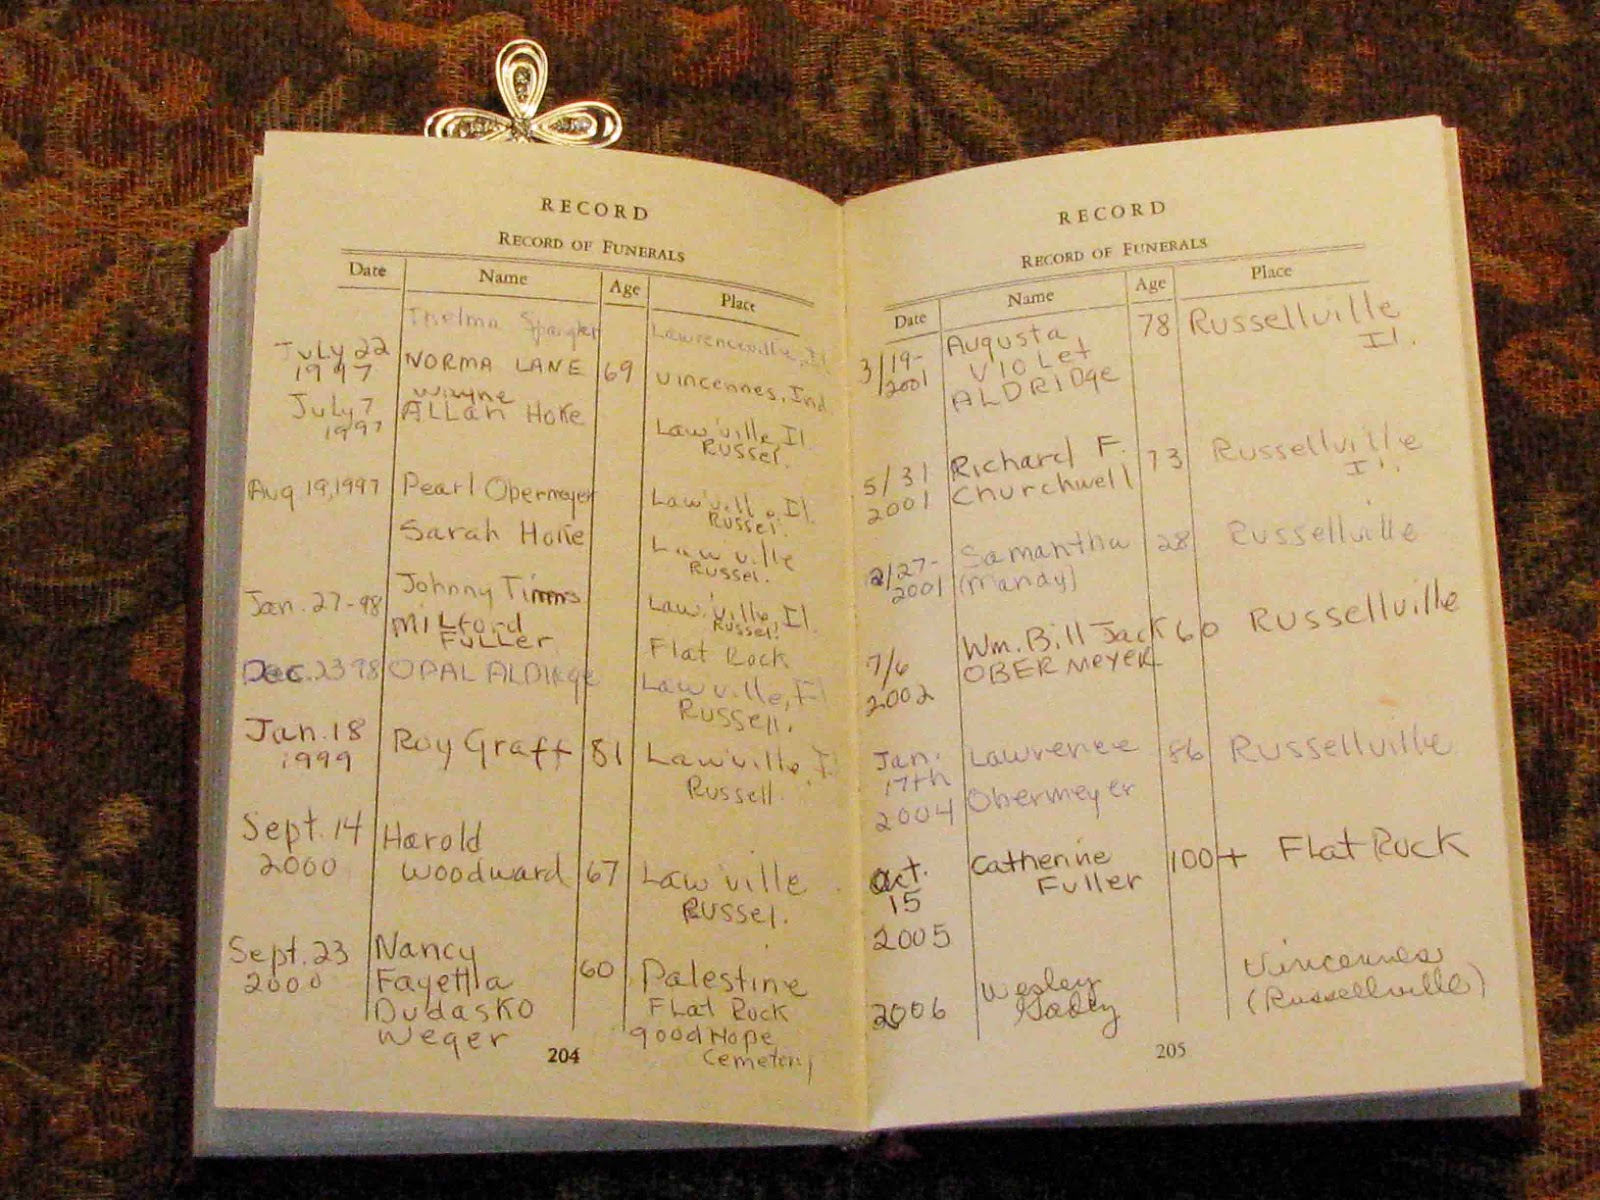 RECORD
RECORD OF FUNERALS
Date Name Age Place
Thelma Spangler Lawrenceville, Il
July 22 1997 NORMA LANE 69 Vincennes, Ind
July 7 1997 Wayne ALLan HoKe Law'ville, Il Russel.
Aug 19, 1997 Pearl Obermeyer Law'vill, Il. Russel.
Sarah Hoke Law'ville Russel.
Jan. 27-98 Johnny Timms Law'ville, Il. Russel.
MiLford FuLLer Flat Rock
Dec. 23 98 OPAL ALDRIdge Law'ville, Il Russell.
Jan. 18 1999 Roy Graft 81 Law'ville, Il Russell
Sept. 14 2000 Harold Woodward 67 Law'ville Russel.
Sept. 23 2000 Nancy 60 Palestine
Fayetta Flat Rock
Dudasko good Hope
Weger Cemetery
204
RECORD
RECORD OF FUNERALS
Date Name Age Place
3/19-2001 Augusta VioLet ALDRIDge 78 Russellville Il.
5/31 2001 Richard F. Churchwell 73 Russellville Il.
2/27-2001 Samantha (Mandy) 28 Russellville
7/6 2002 Wm. Bill Jack OBERMEYER 60 Russellville
Jan. 17th 2004 Lawrence Obermeyer 86 Russellville
Oct. 15 2005 Catherine Fuller 100+ FLat Rock
2006 Wesley Vincennes (Russellville)
205